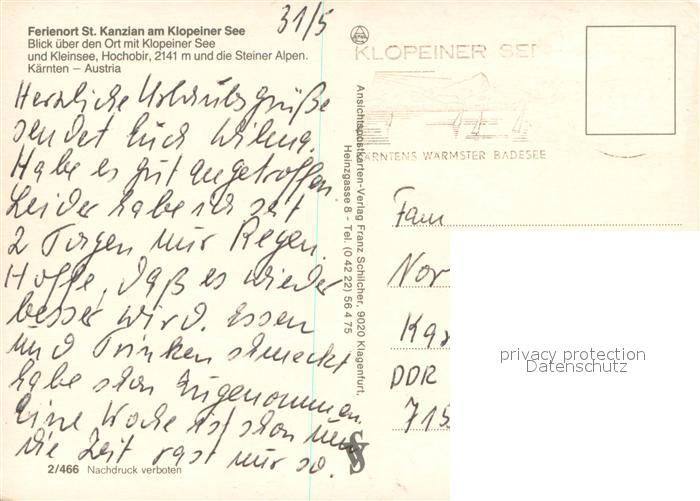 31/5
Ferienort St. Kanzian am Klopeiner See
Blick über den Ort mit Klopeiner See
und Kleinsee, Hochobir, 2141 m und die Steiner Alpen.
Kärnten – Austria
Herzliche Urlaubsgrüße
sendet Euch Wilma.
Habe es gut angetroffen.
Leider habe ich seit
2 Tagen nur Regen.
Hoffe, daß es wieder
besser wird. Essen
und Trinken schmeckt
habe schon zugenommen.
Eine Woche ist schon um
die Zeit rast nur so.
2/466 Nachdruck verboten
Ansichtspostkarten-Verlag Franz Schilcher, 9020 Klagenfurt,
Heinzgasse 8 - Tel. (0 42 22) 56 4 75
KLOPEINER SEE
KÄRNTENS WÄRMSTER BADESEE
Fam
Nor
Kar
DDR
715
privacy protection
Datenschutz